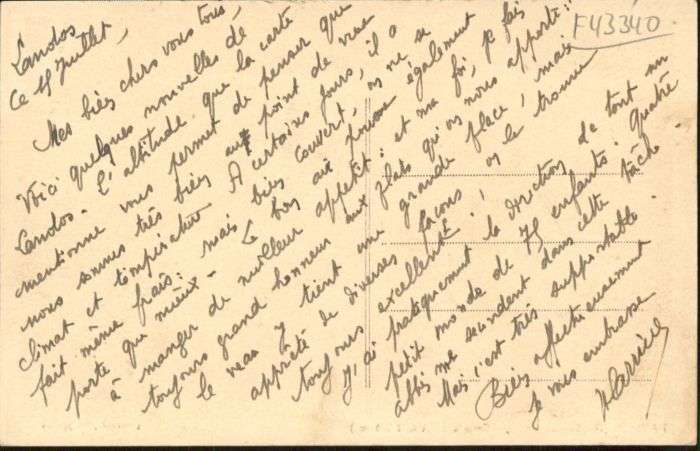 F43340
Landos
Ce 15 Juillet,
Mes bien chers vous tous,
Voici quelques nouvelles de
Landos. L'altitude que la carte
mentionne vous permet de penser que
nous sommes très bien au point de vue
climat et température. A certains jours, il a
fait même frais: mais bien couvert, on ne se
porte que mieux. Le bon air pousse également
à manger de meilleur appétit: et ma foi, je fais
toujours grand honneur aux plats qu'on nous apporte:
le veau y tient une grande place, mais
apprêté de diverses façons, on le trouve
toujours excellent!
J'ai pratiquement la direction de tout un
petit monde de 75 enfants. Quatre
abbés me secondent dans cette tâche.
Mais c'est très supportable
Bien affectueusement
Je vous embrasse